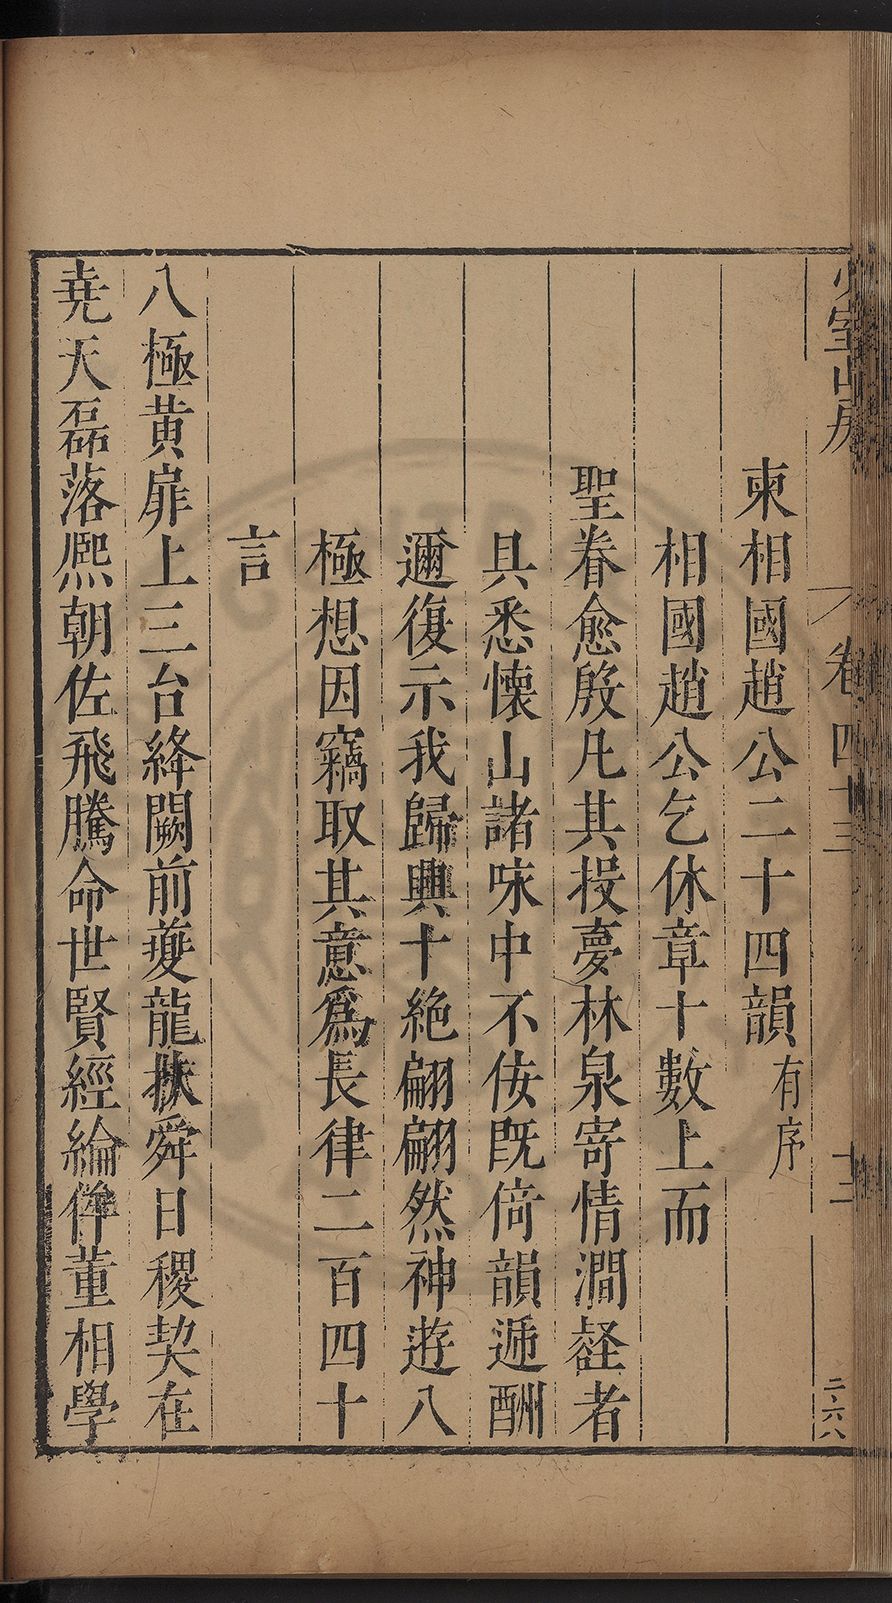 少室山房 卷四十三 十二 二、六八
柬相國趙公二十四韻有序
相國趙公乞休章十數上而
聖眷愈殷凡其投夢林泉寄情澗壑者
具悉懷山諸咏中不佞既倚韻遞酬
邇復示我歸興十絶翩翩然神遊八
極想因竊取其意爲長律二百四十
言
八極黄扉上三台絳闕前夔龍扶舜日稷契在
堯天磊落熈朝佐飛騰命世賢經綸侔董相學